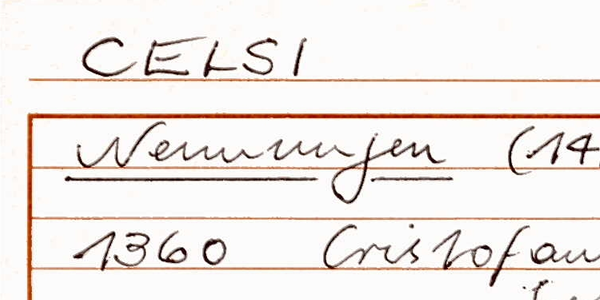 CELSI
Nennungen (14
1360 Cristofan